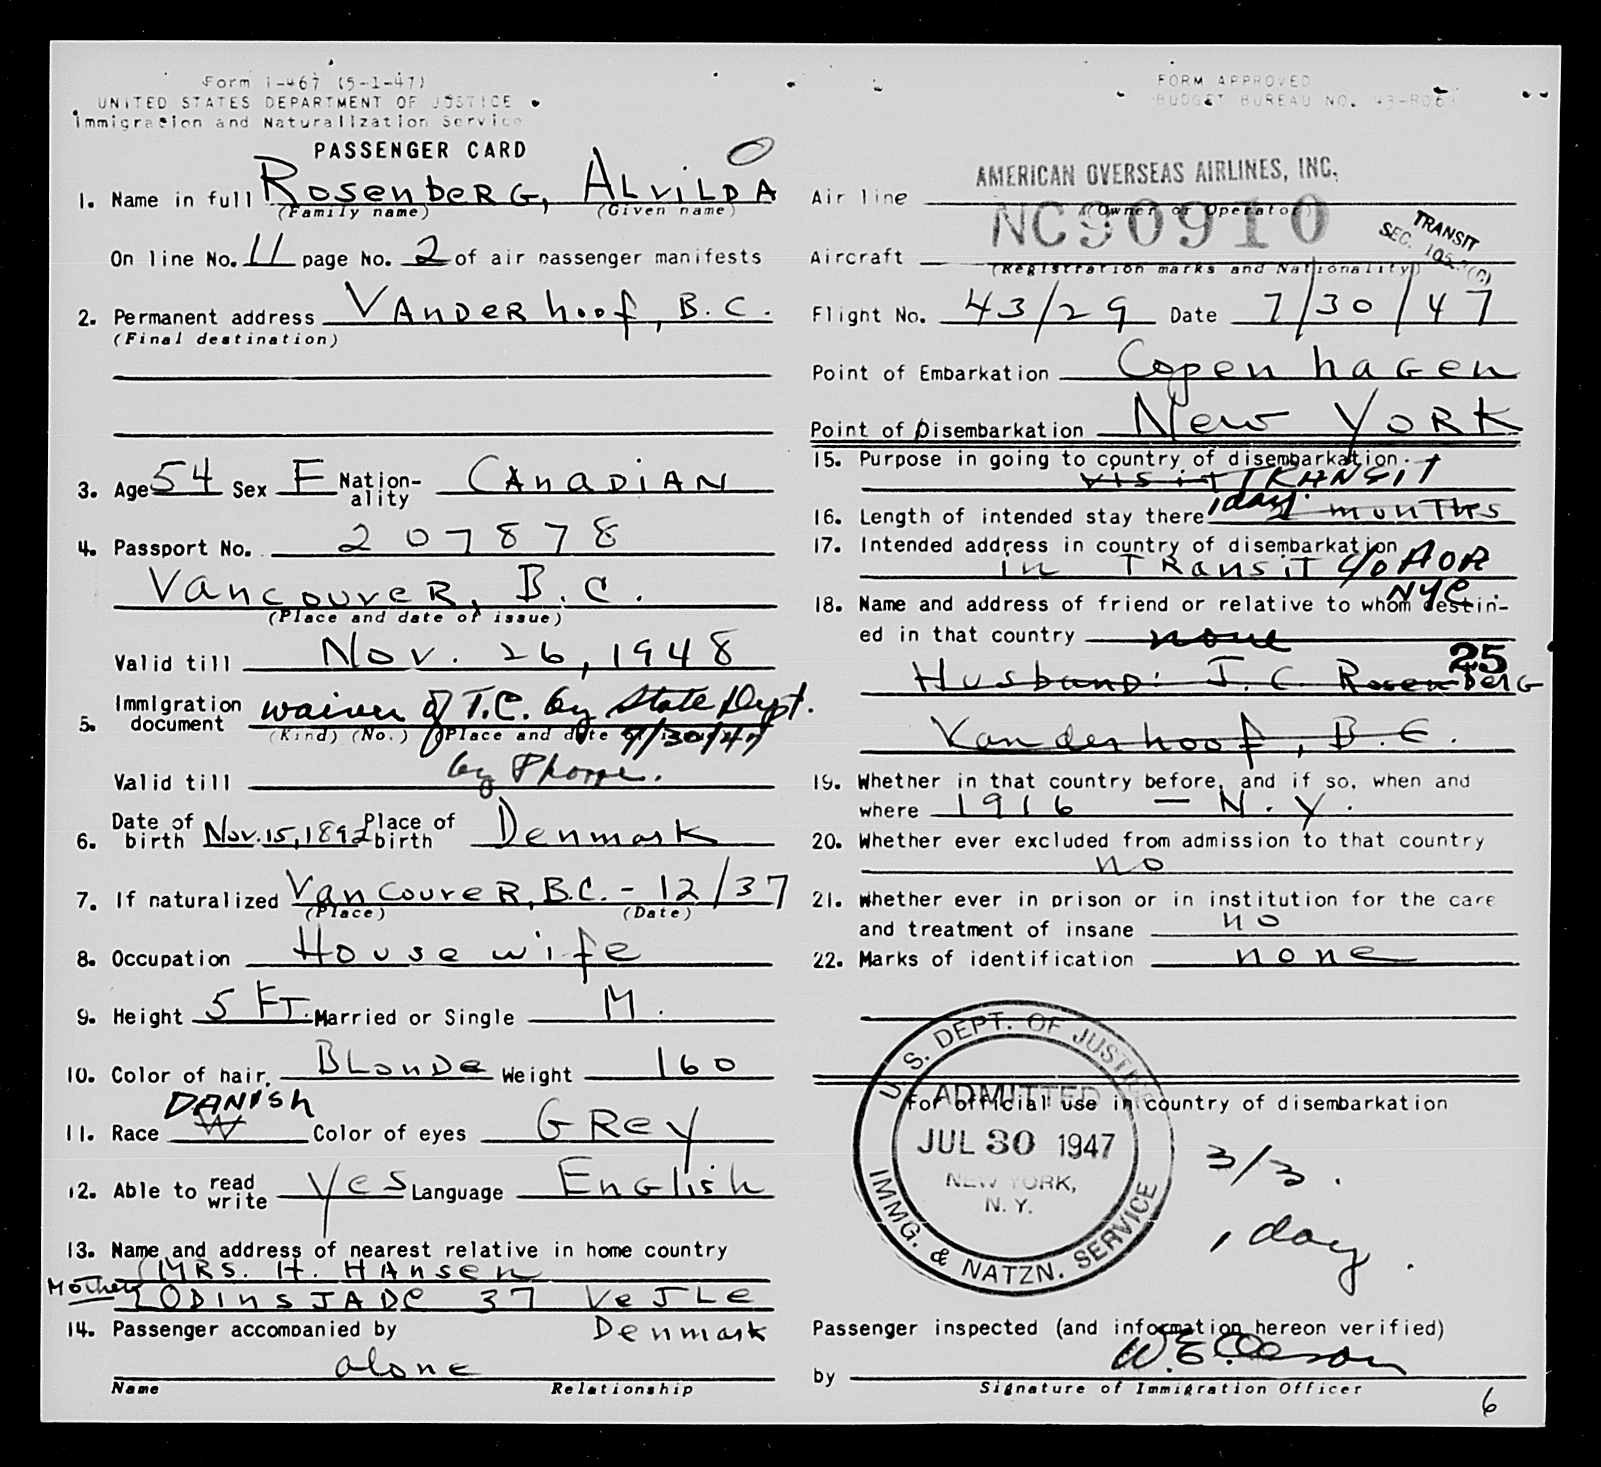 Form I-467 (5-1-47)
UNITED STATES DEPARTMENT OF JUSTICE
Immigration and Naturalization Service
PASSENGER CARD
1. Name in full RosenbeRG, ALVILDA
(Family name) (Given name)
On line No. 11 page No. 2 of air passenger manifests
2. Permanent address VANDERhoof, B.C.
(Final destination)
3. Age 54 Sex F Nation-ality CANADIAN
4. Passport No. 207878
VancouveR, B.C.
(Place and date of issue)
Valid till Nov. 26, 1948
5. Immigration document waiver of T.C. by State Dept.
(Kind) (No.) (Place and date of issue) 7/30/47
Valid till by Phone.
6. Date of birth Nov. 15, 1892 Place of birth Denmark
7. If naturalized VancouveR, B.C. - 12/37
(Place) (Date)
8. Occupation Housewife
9. Height 5 FT. Married or Single M.
10. Color of hair. BLonDe Weight 160
DANISH
11. Race W Color of eyes GRey
12. Able to read write yes Language EnGlish
13. Name and address of nearest relative in home country
MRS. H. HAnsen
Mother ODINSJADE 37 VeJLe
14. Passenger accompanied by Denmark
alone
Name Relationship
FORM APPROVED
BUDGET BUREAU NO. 43-R063
AMERICAN OVERSEAS AIRLINES, INC.
Air line
(Owner or Operator)
NC90910
TRANSIT
SEC.
Aircraft
(Registration marks and Nationality)
Flight No. 43/29 Date 7/30/47
Point of Embarkation CopenhaGen
Point of Disembarkation New YORK
15. Purpose in going to country of disembarkation.
visit TRANSIT
16. Length of intended stay there 1 day. 2 months
17. Intended address in country of disembarkation
in TRansiT c/o AOA
NYC.
18. Name and address of friend or relative to whom destin-
ed in that country none
25
Husband: J. C. RosenbeRG
Vanderhoof, B.C.
19. Whether in that country before, and if so, when and
where 1916 - N.Y.
20. Whether ever excluded from admission to that country
no
21. Whether ever in prison or in institution for the care
and treatment of insane no
22. Marks of identification none
U. S. DEPT. OF JUSTICE
ADMITTED
For official use in country of disembarkation
JUL 30 1947
NEW YORK,
N. Y.
IMMG. & NATZN. SERVICE
3/3.
1 day.
Passenger inspected (and information hereon verified)
by
Signature of Immigration Officer
6